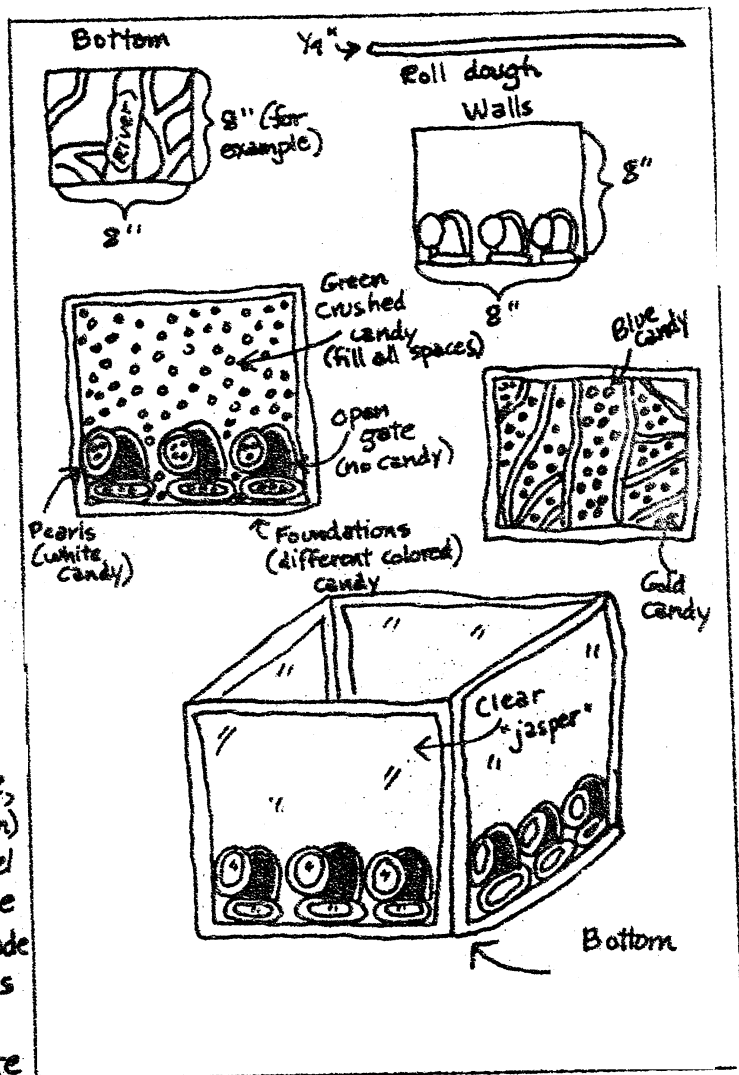 Bottom
1/4" →
Roll dough
(River)
8" (for
example)
8"
Walls
8"
8"
Green
Crushed
candy
(fill all spaces)
Open
gate
(no candy)
Pearls
(white
candy)
Foundations
(different colored)
candy
Blue
candy
Gold
candy
Clear
"jasper"
Bottom